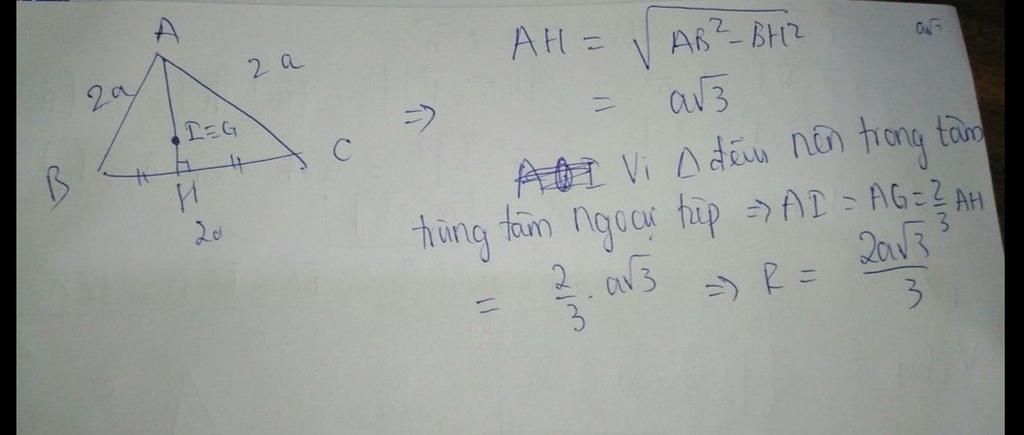 A
2a
2a
I≡G
B
C
H
2a
AH = √AB² - BH²
a√
⇒ = a√3
Vì Δ đều nên trọng tâm
trùng tâm ngoại tiếp ⇒ AI = AG = 2/3 AH
= 2/3 . a√3 ⇒ R = 2a√3/3